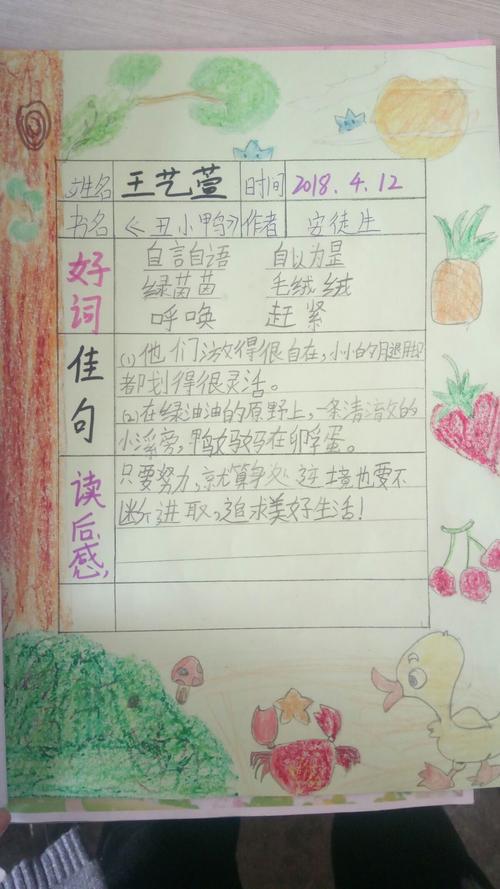 姓名 王艺萱 时间 2018.4.12
书名 《丑小鸭》 作者 安徒生
好词
自言自语 自以为是
绿茵茵 毛绒绒
呼唤 赶紧
佳句
(1)他们游得很自在,小小的腿
都划得很灵活。
(2)在绿油油的原野上,一条清澈的
小溪旁,鸭妈妈在孵蛋。
读后感
只要努力,就算身处逆境也要不
断进取,追求美好生活!